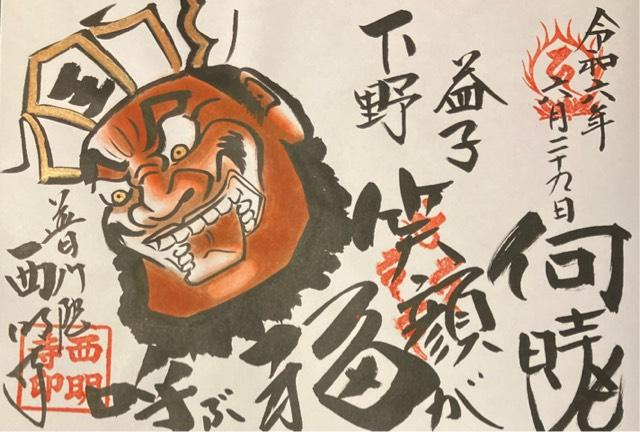 令和六年
六月二十九日
何時も
益子
笑顔が
下野
福を
呼ぶ
王
普門院
西明寺
西明
寺印